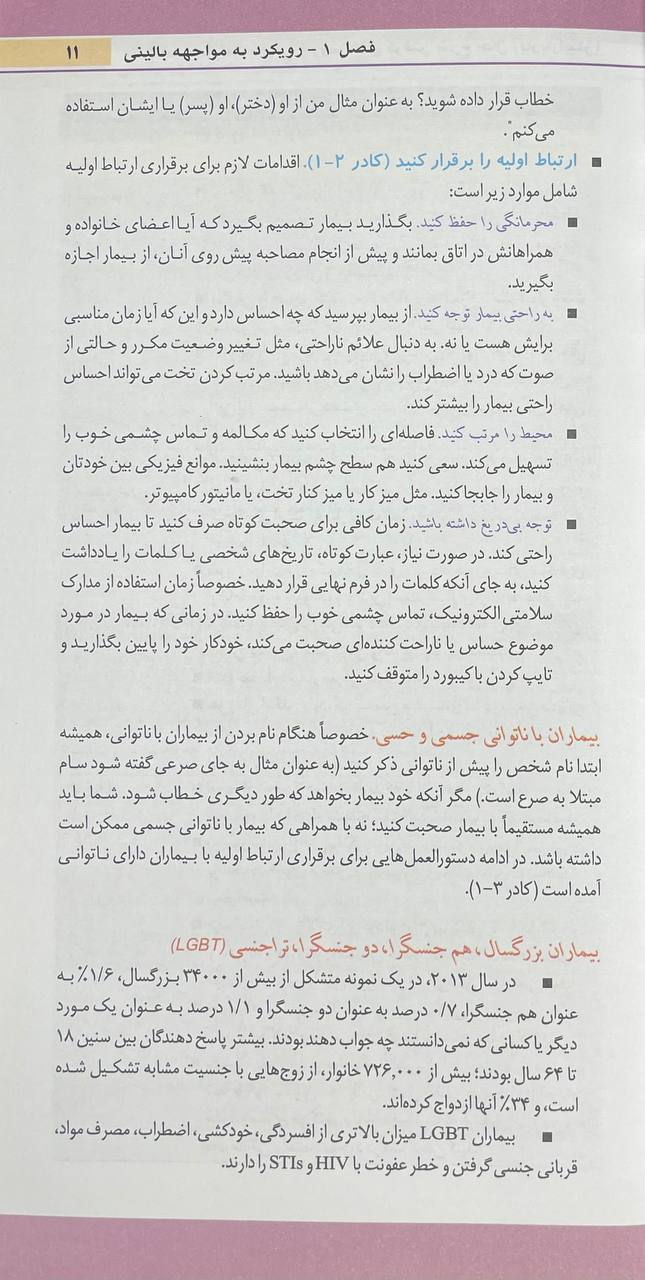 فصل ۱ - رویکرد به مواجهه بالینی ۱۱
خطاب قرار داده شوید؟ به عنوان مثال من از او (دختر)، او (پسر) یا ایشان استفاده
می‌کنم".
■ ارتباط اولیه را برقرار کنید (کادر ۲-۱). اقدامات لازم برای برقراری ارتباط اولیه
شامل موارد زیر است:
■ محرمانگی را حفظ کنید. بگذارید بیمار تصمیم بگیرد که آیا اعضای خانواده و
همراهانش در اتاق بمانند و پیش از انجام مصاحبه پیش روی آنان، از بیمار اجازه
بگیرید.
■ به راحتی بیمار توجه کنید. از بیمار بپرسید که چه احساس دارد و این که آیا زمان مناسبی
برایش هست یا نه. به دنبال علائم ناراحتی، مثل تغییر وضعیت مکرر و حالتی از
صوت که درد یا اضطراب را نشان می‌دهد باشید. مرتب کردن تخت می‌تواند احساس
راحتی بیمار را بیشتر کند.
■ محیط را مرتب کنید. فاصله‌ای را انتخاب کنید که مکالمه و تماس چشمی خوب را
تسهیل می‌کند. سعی کنید هم سطح چشم بیمار بنشینید. موانع فیزیکی بین خودتان
و بیمار را جابجا کنید. مثل میز کار یا میز کنار تخت، یا مانیتور کامپیوتر.
■ توجه بی‌دریغ داشته باشید. زمان کافی برای صحبت کوتاه صرف کنید تا بیمار احساس
راحتی کند. در صورت نیاز، عبارت کوتاه، تاریخ‌های شخصی یا کلمات را یادداشت
کنید، به جای آنکه کلمات را در فرم نهایی قرار دهید. خصوصاً زمان استفاده از مدارک
سلامتی الکترونیک، تماس چشمی خوب را حفظ کنید. در زمانی که بیمار در مورد
موضوع حساس یا ناراحت کننده‌ای صحبت می‌کند، خودکار خود را پایین بگذارید و
تایپ کردن با کیبورد را متوقف کنید.
بیماران با ناتوانی جسمی و حسی. خصوصاً هنگام نام بردن از بیماران با ناتوانی، همیشه
ابتدا نام شخص را پیش از ناتوانی ذکر کنید (به عنوان مثال به جای صرعی گفته شود سام
مبتلا به صرع است.) مگر آنکه خود بیمار بخواهد که طور دیگری خطاب شود. شما باید
همیشه مستقیماً با بیمار صحبت کنید؛ نه با همراهی که بیمار با ناتوانی جسمی ممکن است
داشته باشد. در ادامه دستورالعمل‌هایی برای برقراری ارتباط اولیه با بیماران دارای ناتوانی
آمده است (کادر ۳-۱).
بیماران بزرگسال، هم جنسگرا، دو جنسگرا، تراجنسی (LGBT)
■ در سال ۲۰۱۳، در یک نمونه متشکل از بیش از ۳۴۰۰۰ بزرگسال، ۱/۶٪ به
عنوان هم جنسگرا، ۰/۷ درصد به عنوان دو جنسگرا و ۱/۱ درصد به عنوان یک مورد
دیگر یا کسانی که نمی‌دانستند چه جواب دهند بودند. بیشتر پاسخ دهندگان بین سنین ۱۸
تا ۶۴ سال بودند؛ بیش از ۷۲۶,۰۰۰ خانوار، از زوج‌هایی با جنسیت مشابه تشکیل شده
است، و ۳۴٪ آنها ازدواج کرده‌اند.
■ بیماران LGBT میزان بالاتری از افسردگی، خودکشی، اضطراب، مصرف مواد،
قربانی جنسی گرفتن و خطر عفونت با HIV و STIs را دارند.